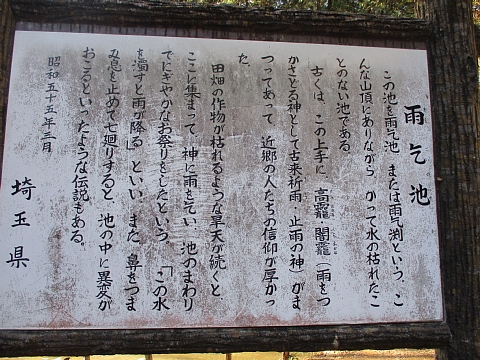 雨乞池
この池を雨乞池、または雨乞渕という。こ
んな山頂にありながら、かつて水の枯れたこ
とのない池である。
古くは、この上手に、高龗・闇龗(雨をつ
かさどる神として古来祈雨、止雨の神)がま
つってあって、近郷の人たちの信仰が厚かっ
た。
田畑の作物が枯れるような旱天が続くと
ここに集まって、神に雨を乞い、池のまわり
でにぎやかなお祭りをしたという。「この水
を濁すと雨が降る」といい、また、鼻をつま
み息を止めて七廻りすると、池の中に異変が
おこるといったような伝説もある。
昭和五十五年三月
埼玉県